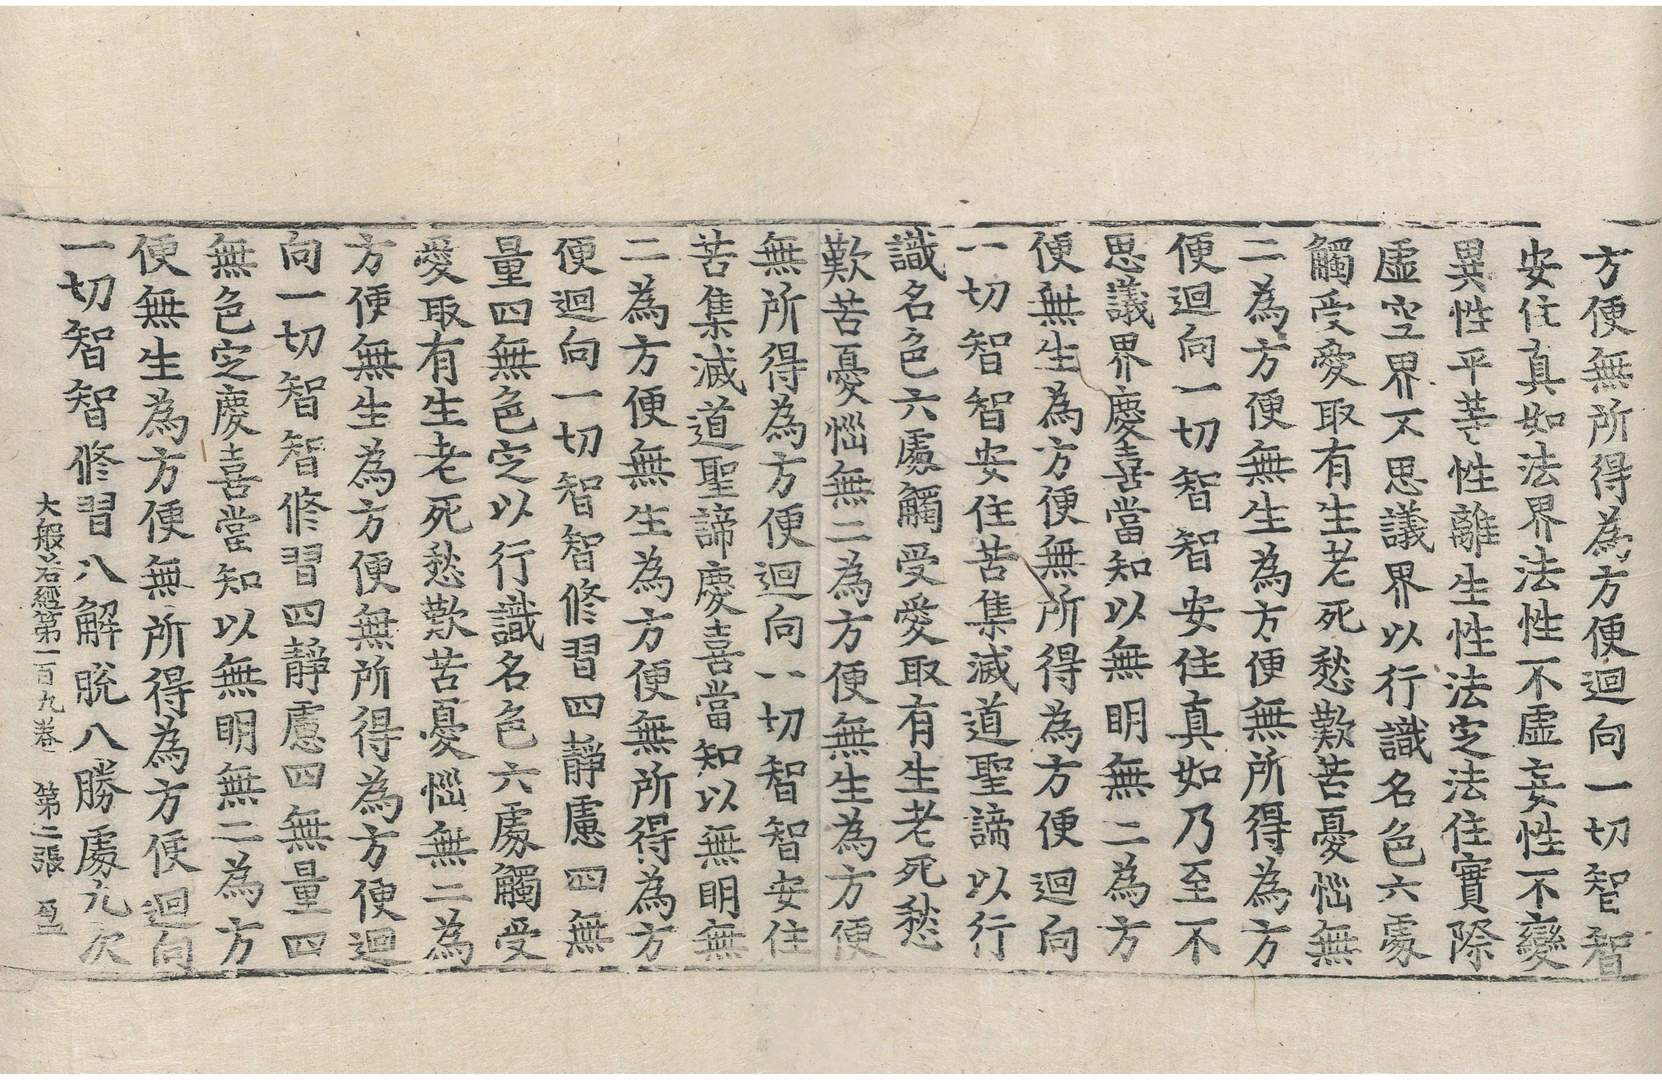 方便無所得為方便迴向一切智智
安住真如法界法性不虛妄性不變
異性平等性離生性法㝎法住實際
虛空界不思議界以行識名色六處
觸受愛取有生老死愁歎苦憂惱無
二為方便無生為方便無所得為方
便迴向一切智智安住真如乃至不
思議界慶喜當知以無明無二為方
便無生為方便無所得為方便迴向
一切智智安住苦集滅道聖諦以行
識名色六處觸受愛取有生老死愁
歎苦憂惱無二為方便無生為方便
無所得為方便迴向一切智智安住
苦集滅道聖諦慶喜當知以無明無
二為方便無生為方便無所得為方
便迴向一切智智修習四靜慮四無
量四無色㝎以行識名色六處觸受
愛取有生老死愁歎苦憂惱無二為
方便無生為方便無所得為方便迴
向一切智智修習四靜慮四無量四
無色㝎慶喜當知以無明無二為方
便無生為方便無所得為方便迴向
一切智智修習八解脫八勝處九次
大般若經第一百九卷 第二張 盈